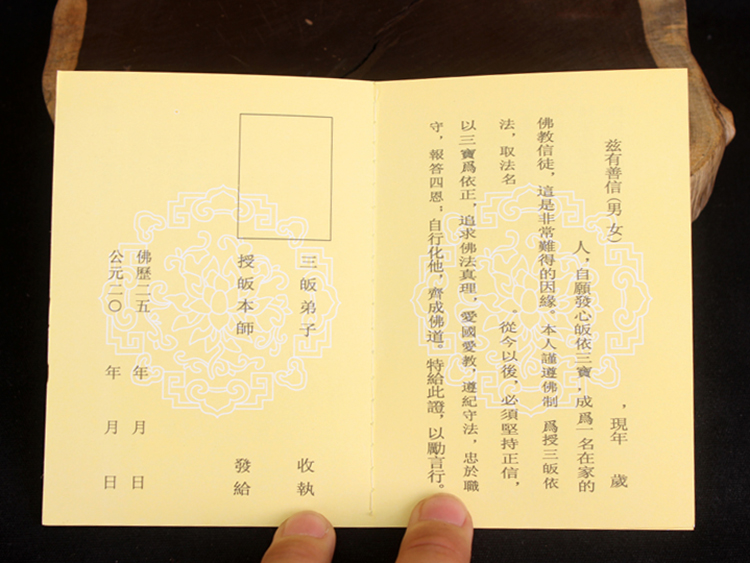 兹有善信(男 女)　，現年　歲
人，自願發心皈依三寶，成爲一名在家的
佛教信徒，這是非常難得的因緣。本人謹遵佛制　爲授三皈依
法，取法名　。從今以後，必須堅持正信，
以三寶爲依正，追求佛法真理，愛國愛教，遵紀守法，忠於職
守，報答四恩；自行化他，齊成佛道。特給此證，以勵言行。
三皈弟子　收執
授皈本師　發給
佛歷二五　年　月　日
公元二〇　年　月　日